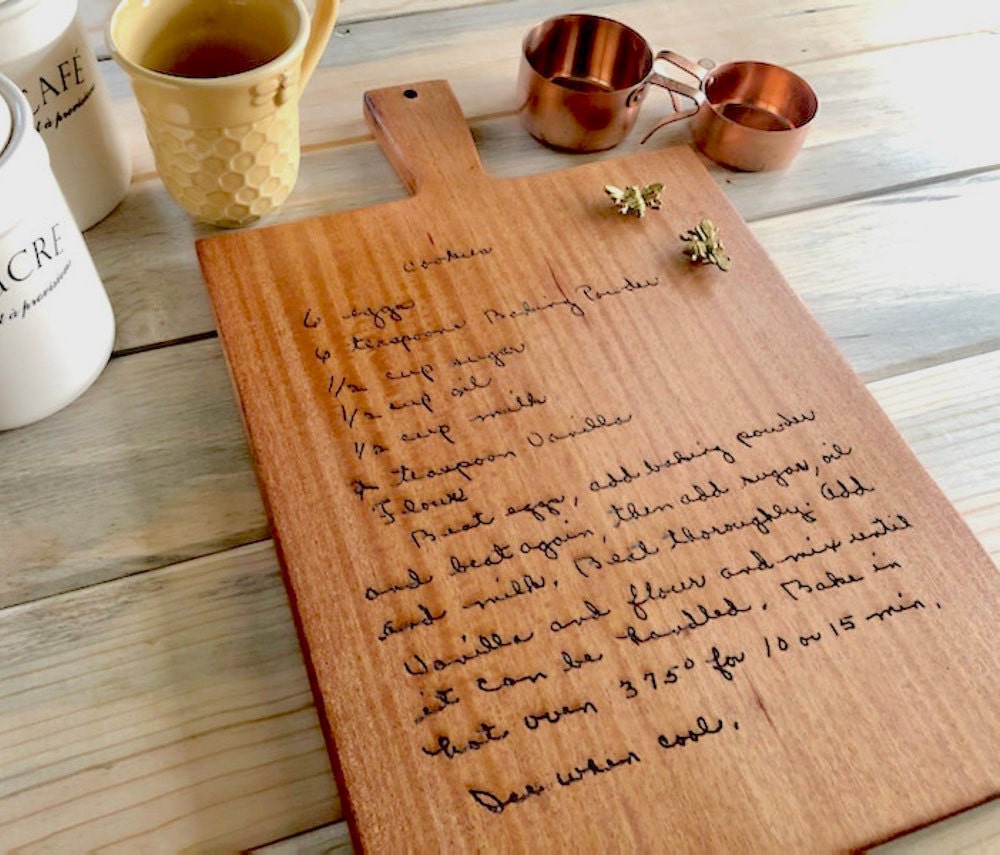 CAFÉ
t à provisions
ACRE
t à provisions
cookies
6 eggs
6 teaspoons Baking Powder
1/2 cup sugar
1/2 cup oil
1/2 cup milk
2 teaspoon Vanilla
Flour
Beat eggs, add baking powder
and beat again, then add sugar, oil
and milk. Beat thoroughly. Add
Vanilla and flour and mix until
it can be handled. Bake in
hot oven 375° for 10 or 15 min.
Ice when cool.